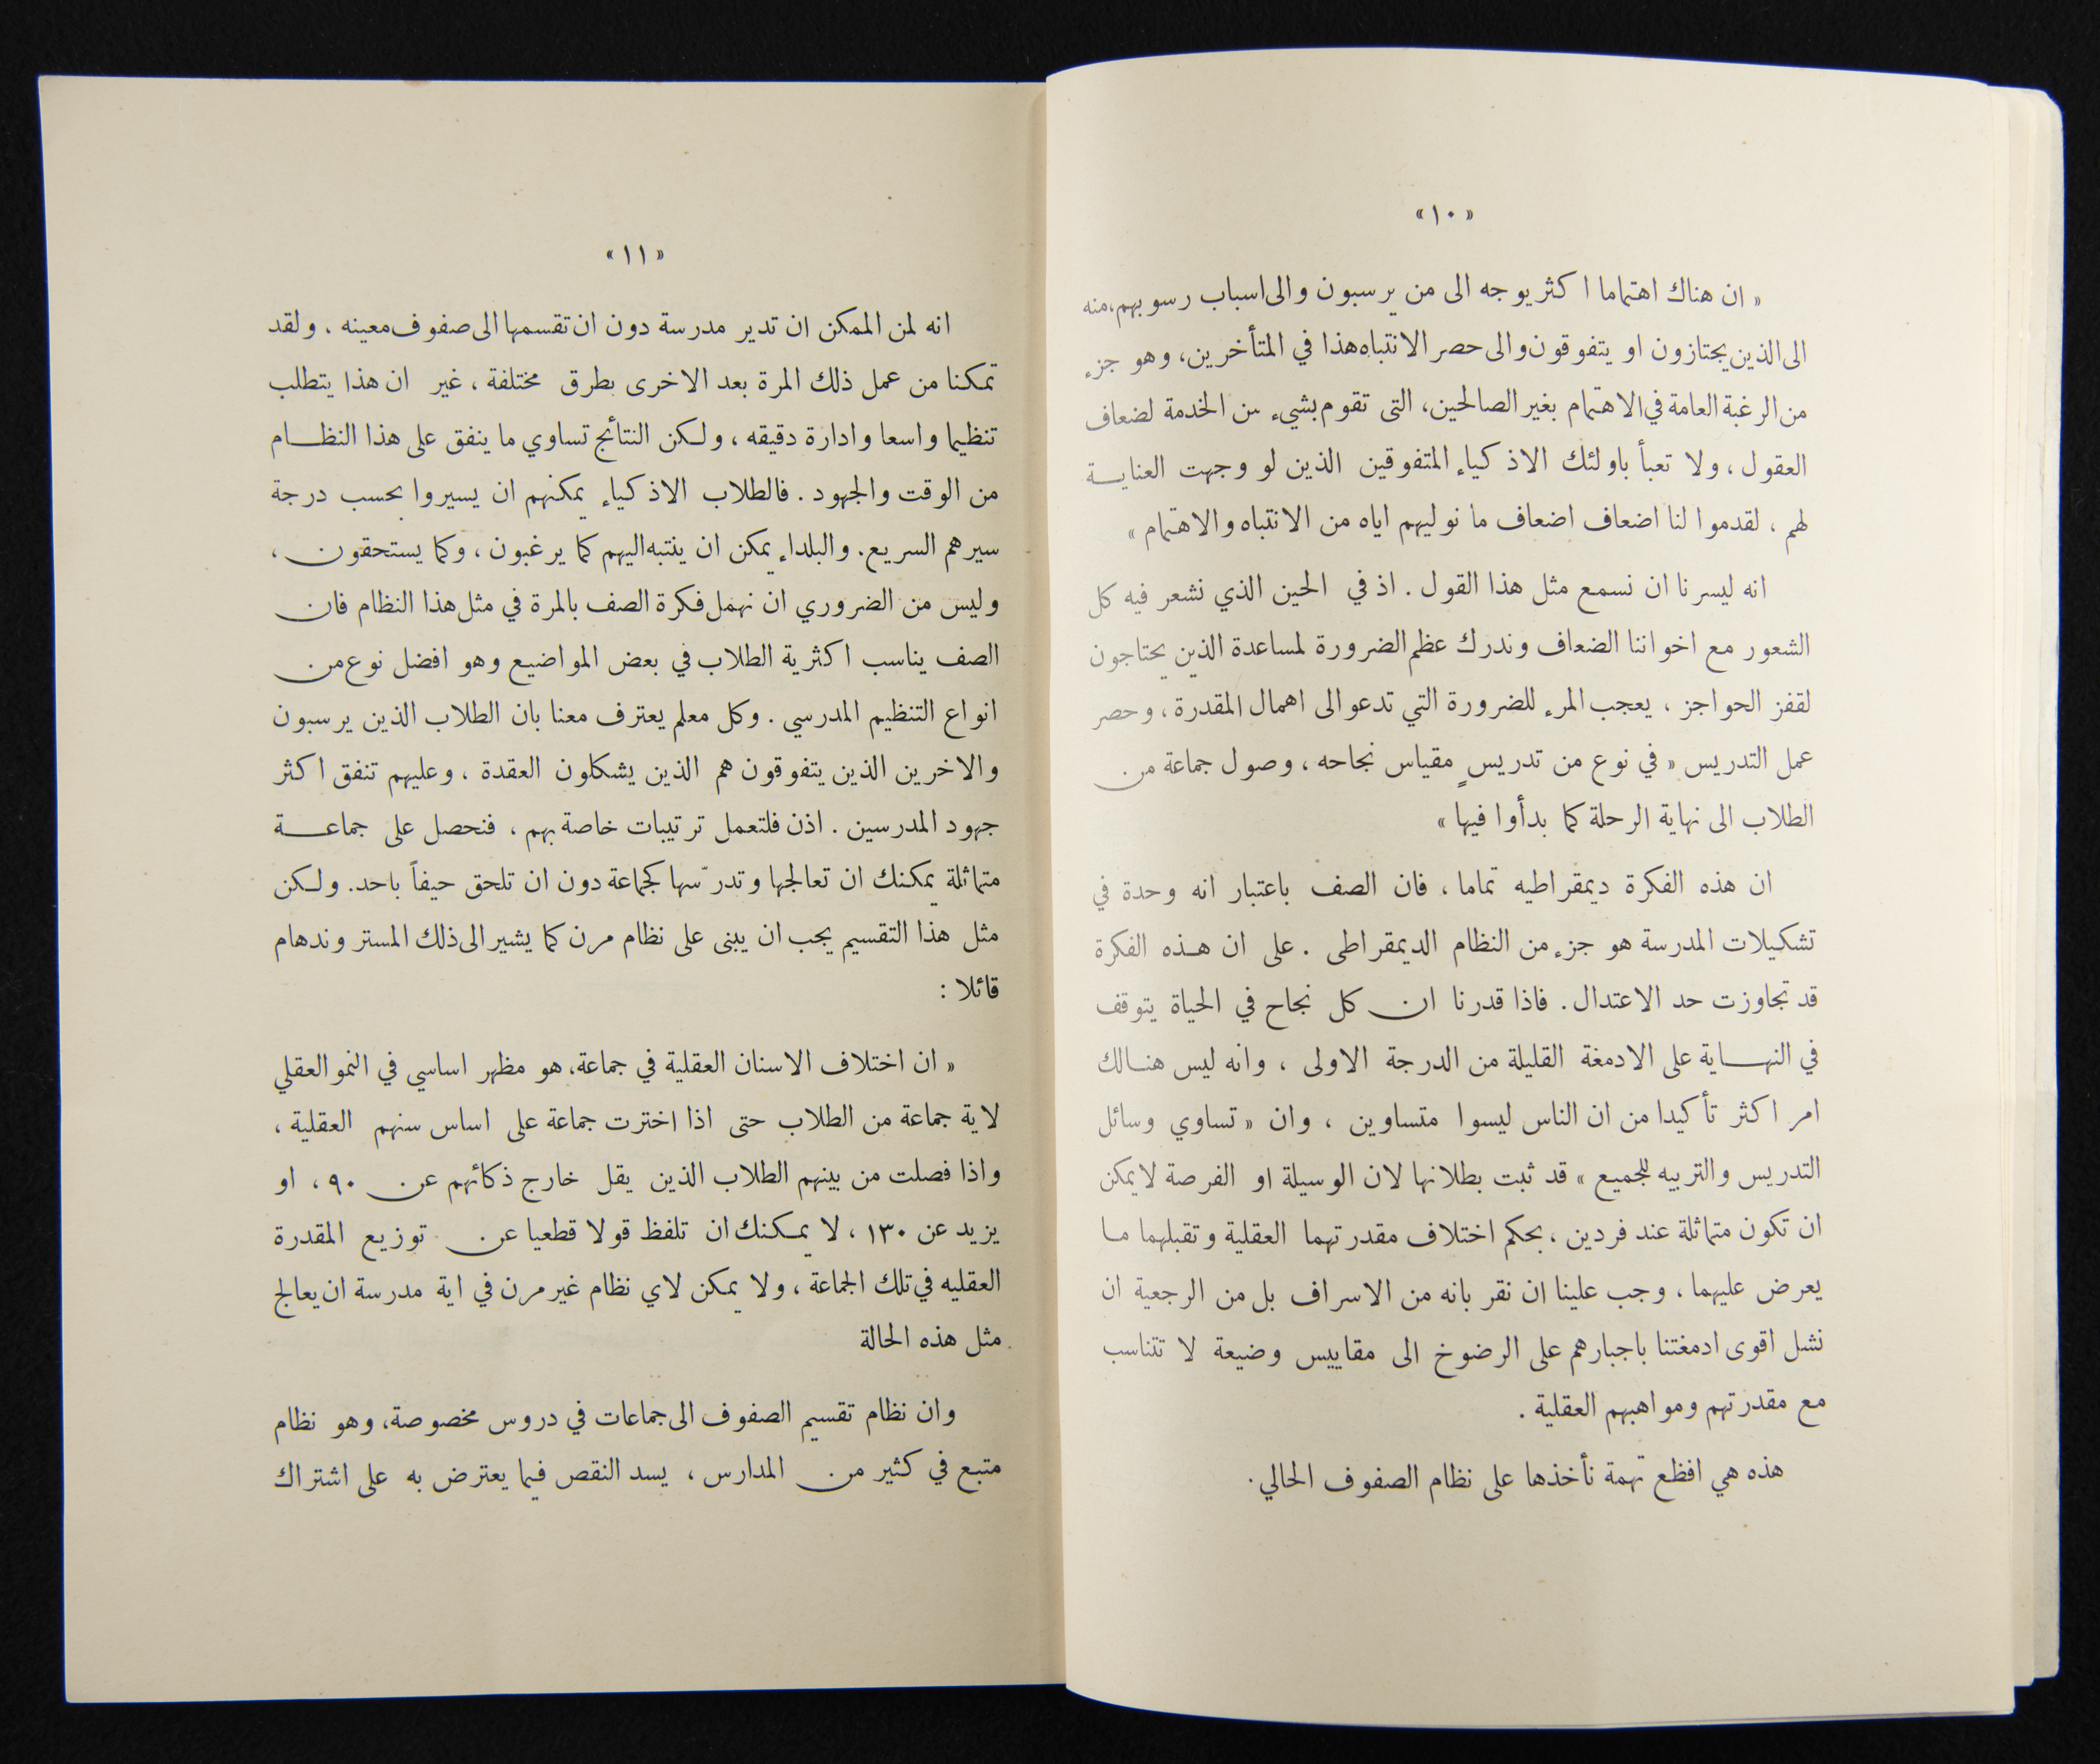 «١٠»
« ان هناك اهتماما اكثر يوجه الى من يرسبون والى اسباب رسوبهم، منه
الى الذين يجتازون او يتفوقون والى حصر الانتباه هذا في المتأخرين، وهو جزء
من الرغبة العامة في الاهتمام بغير الصالحين، التى تقوم بشيء من الخدمة لضعاف
العقول ، ولا تعبأ باولئك الاذكياء المتفوقين الذين لو وجهت العنايــة
لهم ، لقدموا لنا اضعاف اضعاف ما نوليهم اياه من الانتباه والاهتمام »
انه ليسرنا ان نسمع مثل هذا القول . اذ في الحين الذي نشعر فيه كل
الشعور مع اخواننا الضعاف وندرك عظم الضرورة لمساعدة الذين يحتاجون
لقفز الحواجز ، يعجب المرء للضرورة التي تدعو الى اهمال المقدرة ، وحصر
عمل التدريس « في نوع من تدريسٍ مقياس نجاحه ، وصول جماعة من
الطلاب الى نهاية الرحلة كما بدأوا فيها »
ان هذه الفكرة ديمقراطيه تماما ، فان الصف باعتبار انه وحدة في
تشكيلات المدرسة هو جزء من النظام الديمقراطى . على ان هــذه الفكرة
قد تجاوزت حد الاعتدال . فاذا قدرنا ان كل نجاح في الحياة يتوقف
في النهــاية على الادمغة القليلة من الدرجة الاولى ، وانه ليس هنــالك
امر اكثر تأكيدا من ان الناس ليسوا متساوين ، وان « تساوي وسائل
التدريس والتربيه للجميع » قد ثبت بطلانها لان الوسيلة او الفرصة لا يمكن
ان تكون متماثلة عند فردين ، بحكم اختلاف مقدرتهما العقلية وتقبلهما مـا
يعرض عليهما ، وجب علينا ان نقر بانه من الاسراف بل من الرجعية ان
نشل اقوى ادمغتنا باجبارهم على الرضوخ الى مقاييس وضيعة لا تتناسب
مع مقدرتهم ومواهبهم العقلية .
هذه هي افظع تهمة نأخذها على نظام الصفوف الحالي .
«١١»
انه لمن الممكن ان تدير مدرسة دون ان تقسمها الى صفوف معينه . ولقد
تمكنا من عمل ذلك المرة بعد الاخرى بطرق مختلفة ، غير ان هذا يتطلب
تنظيما واسعا وادارة دقيقه ، ولـكن النتائج تساوي ما ينفق على هذا النظــام
من الوقت والجهود . فالطلاب الاذكياء يمكنهم ان يسيروا بحسب درجة
سيرهم السريع. والبلداء يمكن ان ينتبه اليهم كما يرغبون ، وكما يستحقون ،
وليس من الضروري ان نهمل فكرة الصف بالمرة في مثل هذا النظام فان
الصف يناسب اكثرية الطلاب في بعض المواضيع وهو افضل نوع من
انواع التنظيم المدرسي . وكل معلم يعترف معنا بان الطلاب الذين يرسبون
والاخرين الذين يتفوقون هم الذين يشكلون العقدة ، وعليهم تنفق اكثر
جهود المدرسين . اذن فلتعمل ترتيبات خاصة بهم ، فنحصل على جماعــة
متماثلة يمكنك ان تعالجها وتدرّسها كجماعة دون ان تلحق حيفاً باحد. ولـكن
مثل هذا التقسيم يجب ان يبنى على نظام مرن كما يشير الى ذلك المستر وندهام
قائلا :
« ان اختلاف الاسنان العقلية في جماعة، هو مظهر اساسي في النمو العقلي
لاية جماعة من الطلاب حتى اذا اخترت جماعة على اساس سنهم العقلية ،
واذا فصلت من بينهم الطلاب الذين يقل خارج ذكائهم عن ٩٠ ، او
يزيد عن ١٣٠ ، لا يمـكنك ان تلفظ قولا قطعيا عن توزيع المقدرة
العقليه في تلك الجماعة ، ولا يمكن لاي نظام غير مرن في اية مدرسة ان يعالج
مثل هذه الحالة
وان نظام تقسيم الصفوف الى جماعات في دروس مخصوصة، وهو نظام
متبع في كثير من المدارس ، يسد النقص فيما يعترض به على اشتراك